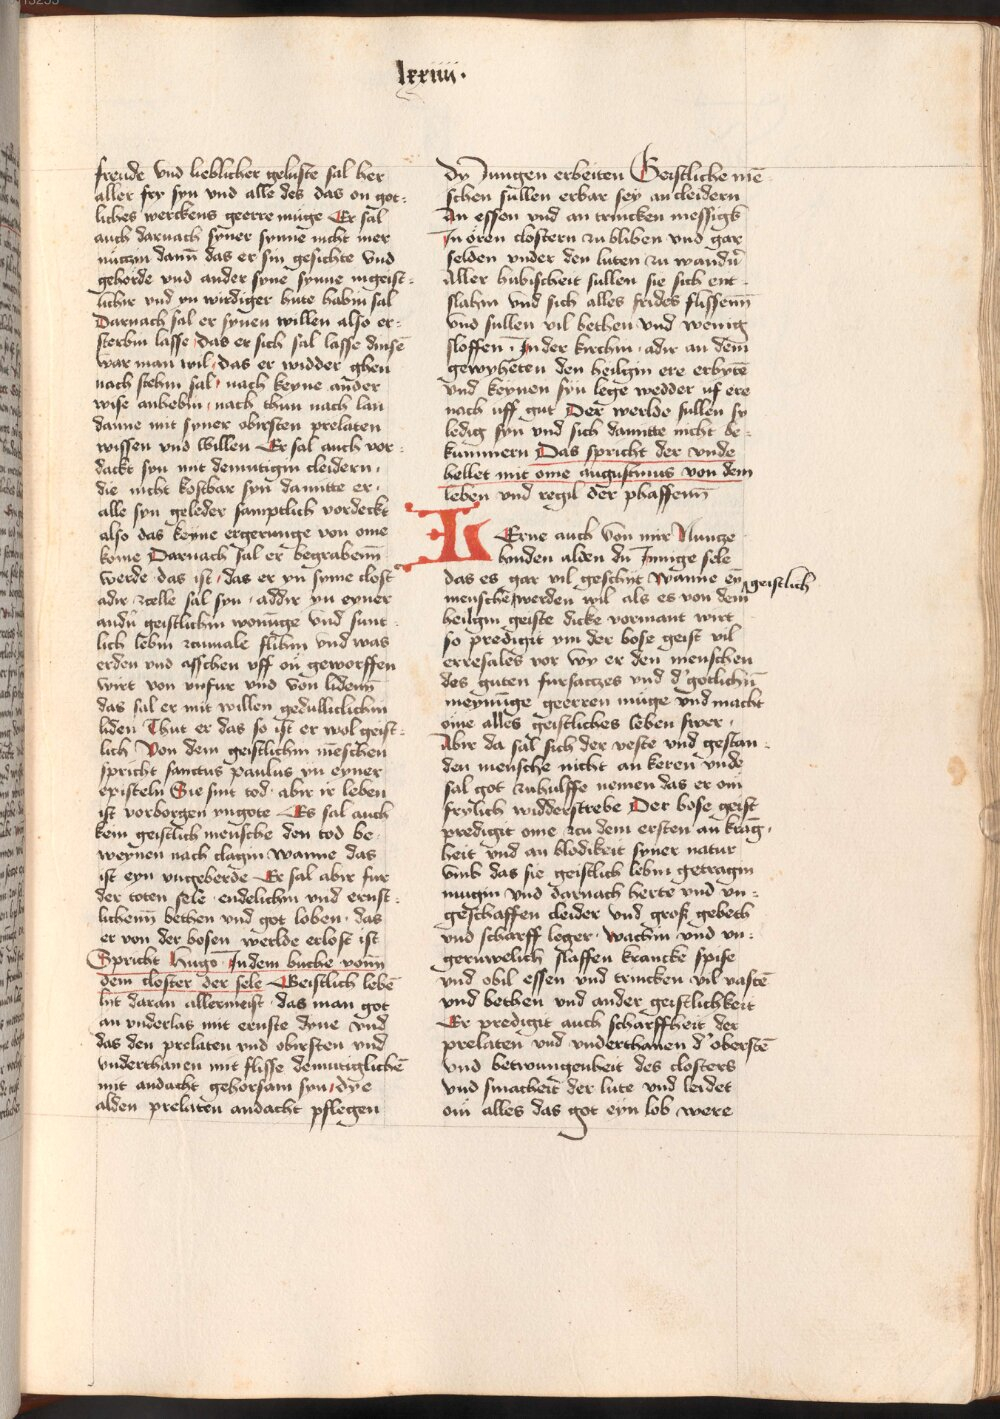 lxxiiii.
freude vnd lieblicher geluste sal her
aller fry syn vnd alle des das on got-
liches werckens geerre muge Er sal
auch darnach syner synne nicht mer
nuczin dann das er sin gesichte vnd
gehorde vnd ander syne synne ingeist-
lichir vnd yn wirdiger hute habin sal
Darnach sal er synen willen also er-
sterbin lasse das er sich sal lasse dinsē
war man wil das er widder ghen
nach stehin sal nach keyne ander
wise anhebin nach thun nach lan
danne mit syner obirsten prelaten
wissen vnd willen Er sal auch vor-
dackt syn mit demutigin cleidern
die nicht kostbar syn damitte er
alle syn geleder samptlich vordeckt
also das keyne ergerunge von ome
kome Darnach sal er begrabenn
werde das ist das er yn syme clost
adir zcelle sal syn addir yn eyner
andn geistlichin wonuge vnd sunt-
lich lebin zcumale flihin vnd was
erden vnd asschen vff on geworffen
wirt von vnfur vnd von lidenn
das sal er mit willen gedulliclichin
liden Thut er das so ist er wol geist-
lich Von dem geistlichin menschen
spricht sanctus paulus yn eyner
episteln Sie sint tod abir ir leben
ist vorborgen yngote Es sal auch
kein geistlich mensche den tod be-
weynen nach clagin wanne das
ist eyn vngeberde Er sal abir fur
der toten sele endelichin vnd ernst-
lichenn bethen vnd got loben das
er von der bosen werlde erlost ist
Spricht hugo Indem buche vonn
dem closter der sele Geistlich lebē
lyt daran allermeist das man got
an vnderlas mit ernste dyne vnd
das den prelaten vnd obirsten vnd
vnderthanen mit flisse demutiglichē
mit andacht gehorsam syn dye
alden prelaten andacht pflegen
dy Jungen erbeiten Geistliche mē-
schen sullen erbar sey an cleidern
An essen vnd an trincken messigk
In oren clostern zu bliben vnd gar
selden vnder den luten zu wandn
Aller hubischeit sullen sie sich ent-
slahin vnd sich alles frides flissenn
vnd sullen vil bethen vnd wenig
sloffen In der kirchin adir an dem
gewyheten den heilgin ere erbytē
vnd keynen syn lege wedder vf ere
nach vff gut Der werlde sullen sy
ledig syn vnd sich damitte nicht be-
kummern Das spricht der vnde
hellet mit ome augustinus von dem
leben vnd regil der phaffenn
LErne auch von mir Nuncze
hunden alden du Innige sele
das es gar vil geschyt Wanne eyn
menschē werden wil als es von dem geistlich
heilgin geiste dicke vormant wirt
so predigit vm der bose geist vil
erresales vor wy er den menschen
des guten fursaczes vnd d gotlichn
meynunge geerren muge vnd macht
ome alles geistliches leben swer
Abir da sal sich der veste vnd gestan-
den mensche nicht an keren vnde
sal got zuhulffe nemen das er om
frylich widderstrebe Der bose geist
predigit ome zcu dem ersten an krāg-
heit vnd an blodikeit syner natur
vmb das sie geistlich lebin getragin
mugin vnd darnach herte vnd vn-
geschaffen cleider vnd groß gebeth
vnd scharff leger wachin vnd vn-
geruwelich slaffen krancke spise
vnd obil essen vnd trincken vil vastē
vnd bethen vnd ander geistlichkeit
Er predigit auch scharffheit der
prelaten vnd vnderthanen d oberstē
vnd betwungenheit des closters
vnd smacheit der lute vnd leidet
om alles das got eyn lob were